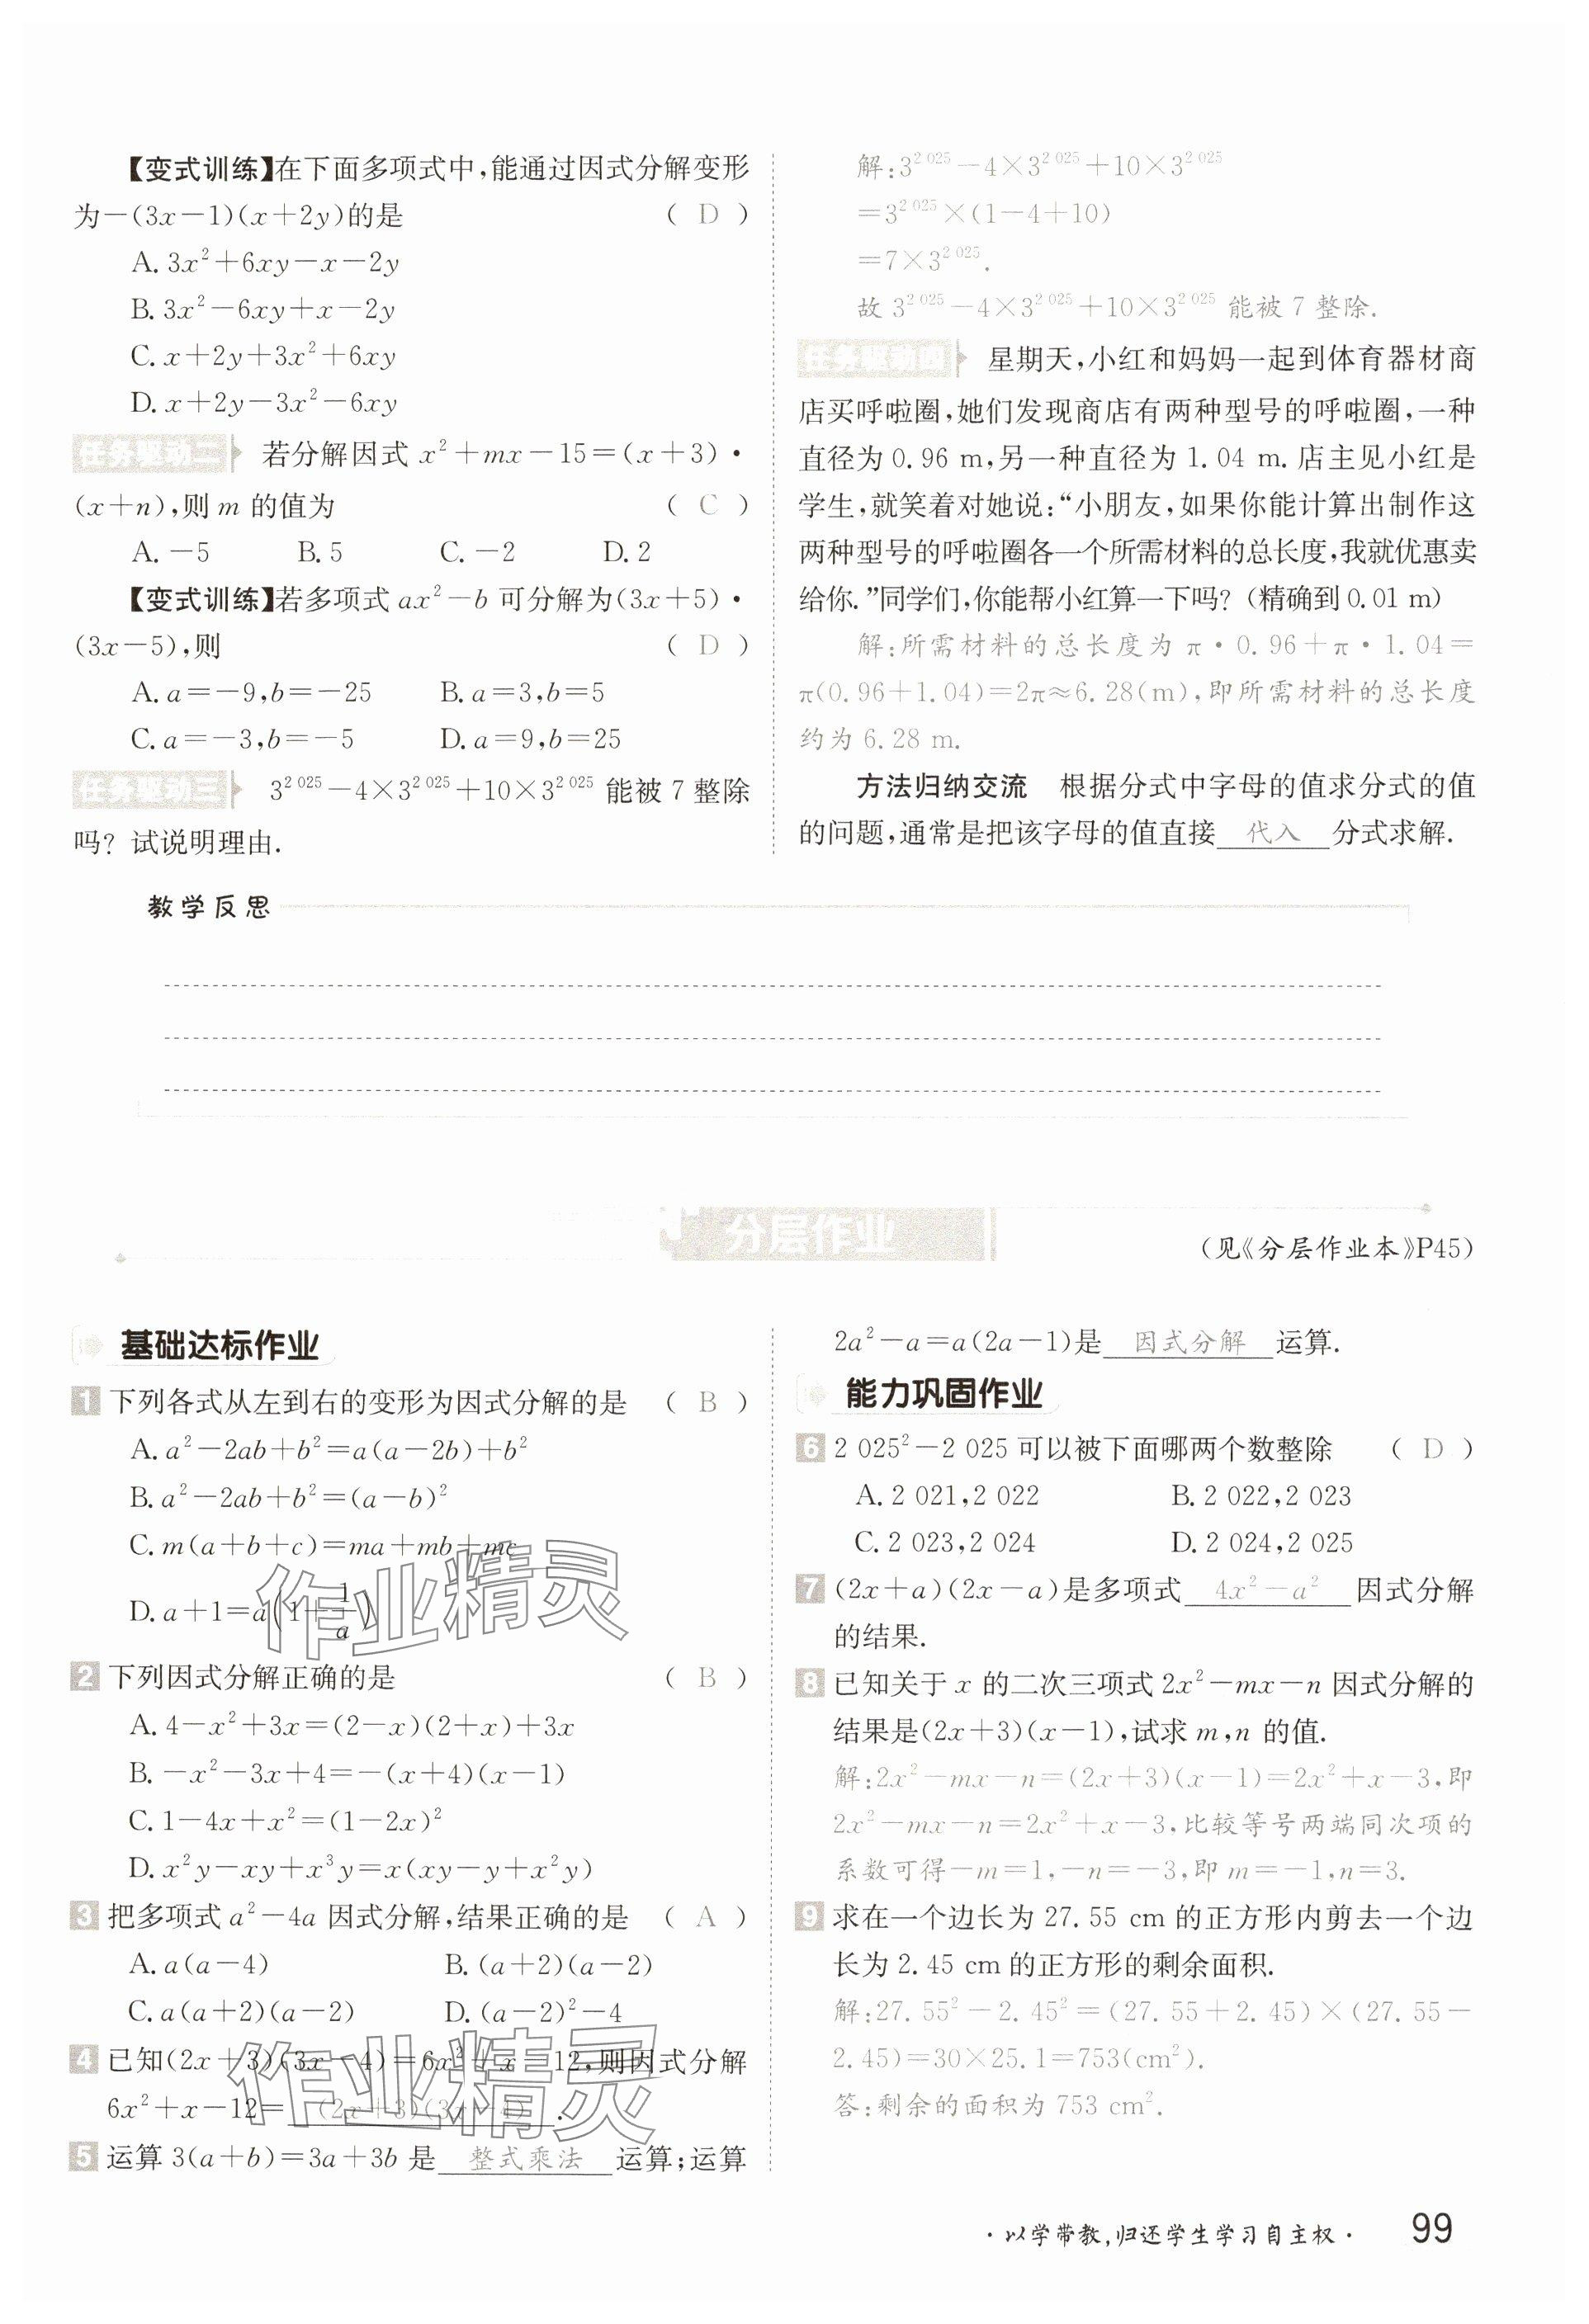 【变式训练】在下面多项式中,能通过因式分解变形
为－(3x－1)(x＋2y)的是 ( D )
A. 3x²＋6xy－x－2y
B. 3x²－6xy＋x－2y
C. x＋2y＋3x²＋6xy
D. x＋2y－3x²－6xy
任务驱动二 若分解因式 x²＋mx－15＝(x＋3)·
(x＋n),则 m 的值为 ( C )
A. －5 B. 5 C. －2 D. 2
【变式训练】若多项式 ax²－b 可分解为(3x＋5)·
(3x－5),则 ( D )
A. a＝－9,b＝－25 B. a＝3,b＝5
C. a＝－3,b＝－5 D. a＝9,b＝25
任务驱动三 3^{2 025}－4×3^{2 025}＋10×3^{2 025} 能被 7 整除
吗? 试说明理由.
解:3^{2 025}－4×3^{2 025}＋10×3^{2 025}
＝3^{2 025}×(1－4＋10)
＝7×3^{2 025}.
故 3^{2 025}－4×3^{2 025}＋10×3^{2 025} 能被 7 整除.
任务驱动四 星期天,小红和妈妈一起到体育器材商
店买呼啦圈,她们发现商店有两种型号的呼啦圈,一种
直径为 0. 96 m,另一种直径为 1. 04 m. 店主见小红是
学生,就笑着对她说:“小朋友,如果你能计算出制作这
两种型号的呼啦圈各一个所需材料的总长度,我就优惠卖
给你.”同学们,你能帮小红算一下吗? (精确到 0.01 m)
解:所需材料的总长度为 π·0. 96＋π·1. 04＝
π(0. 96＋1. 04)＝2π≈6. 28(m),即所需材料的总长度
约为 6. 28 m.
方法归纳交流 根据分式中字母的值求分式的值
的问题,通常是把该字母的值直接 代入 分式求解.
教学反思
分层作业
(见《分层作业本》P45)
基础达标作业
1 下列各式从左到右的变形为因式分解的是 ( B )
A. a²－2ab＋b²＝a(a－2b)＋b²
B. a²－2ab＋b²＝(a－b)²
C. m(a＋b＋c)＝ma＋mb＋mc
D. a＋1＝a(1＋1/a)
2 下列因式分解正确的是 ( B )
A. 4－x²＋3x＝(2－x)(2＋x)＋3x
B. －x²－3x＋4＝－(x＋4)(x－1)
C. 1－4x＋x²＝(1－2x)²
D. x²y－xy＋x³y＝x(xy－y＋x²y)
3 把多项式 a²－4a 因式分解,结果正确的是 ( A )
A. a(a－4) B. (a＋2)(a－2)
C. a(a＋2)(a－2) D. (a－2)²－4
4 已知(2x＋3)(3x－4)＝6x²＋x－12,则因式分解
6x²＋x－12＝ (2x＋3)(3x－4) .
5 运算 3(a＋b)＝3a＋3b 是 整式乘法 运算;运算
2a²－a＝a(2a－1)是 因式分解 运算.
能力巩固作业
6 2 025²－2 025 可以被下面哪两个数整除 ( D )
A. 2 021,2 022 B. 2 022,2 023
C. 2 023,2 024 D. 2 024,2 025
7 (2x＋a)(2x－a)是多项式 4x²－a² 因式分解
的结果.
8 已知关于 x 的二次三项式 2x²－mx－n 因式分解的
结果是(2x＋3)(x－1),试求 m,n 的值.
解:2x²－mx－n＝(2x＋3)(x－1)＝2x²＋x－3,即
2x²－mx－n＝2x²＋x－3,比较等号两端同次项的
系数可得－m＝1,－n＝－3,即 m＝－1,n＝3.
9 求在一个边长为 27. 55 cm 的正方形内剪去一个边
长为 2. 45 cm 的正方形的剩余面积.
解:27. 55²－2. 45²＝(27. 55＋2. 45)×(27. 55－
2. 45)＝30×25. 1＝753(cm²).
答:剩余的面积为 753 cm².
作业精灵
作业精灵
·以学带教,归还学生学习自主权· 99